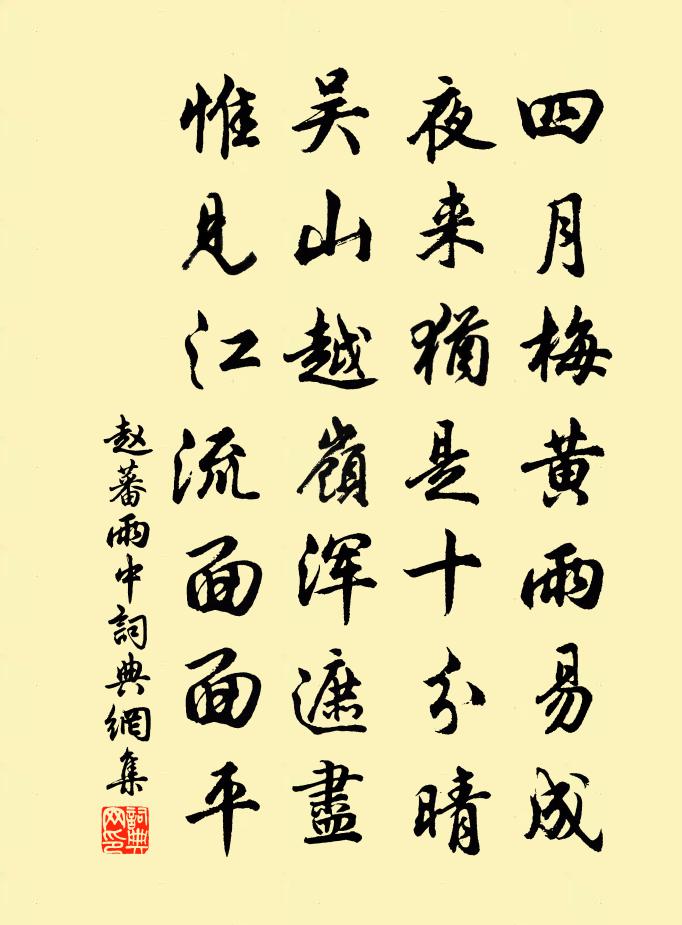 四月梅黄雨易成
夜来猶是十分晴
吴山越嶺浑遮盡
惟見江流面面平
赵蕃雨中詞典網集
詞典网印